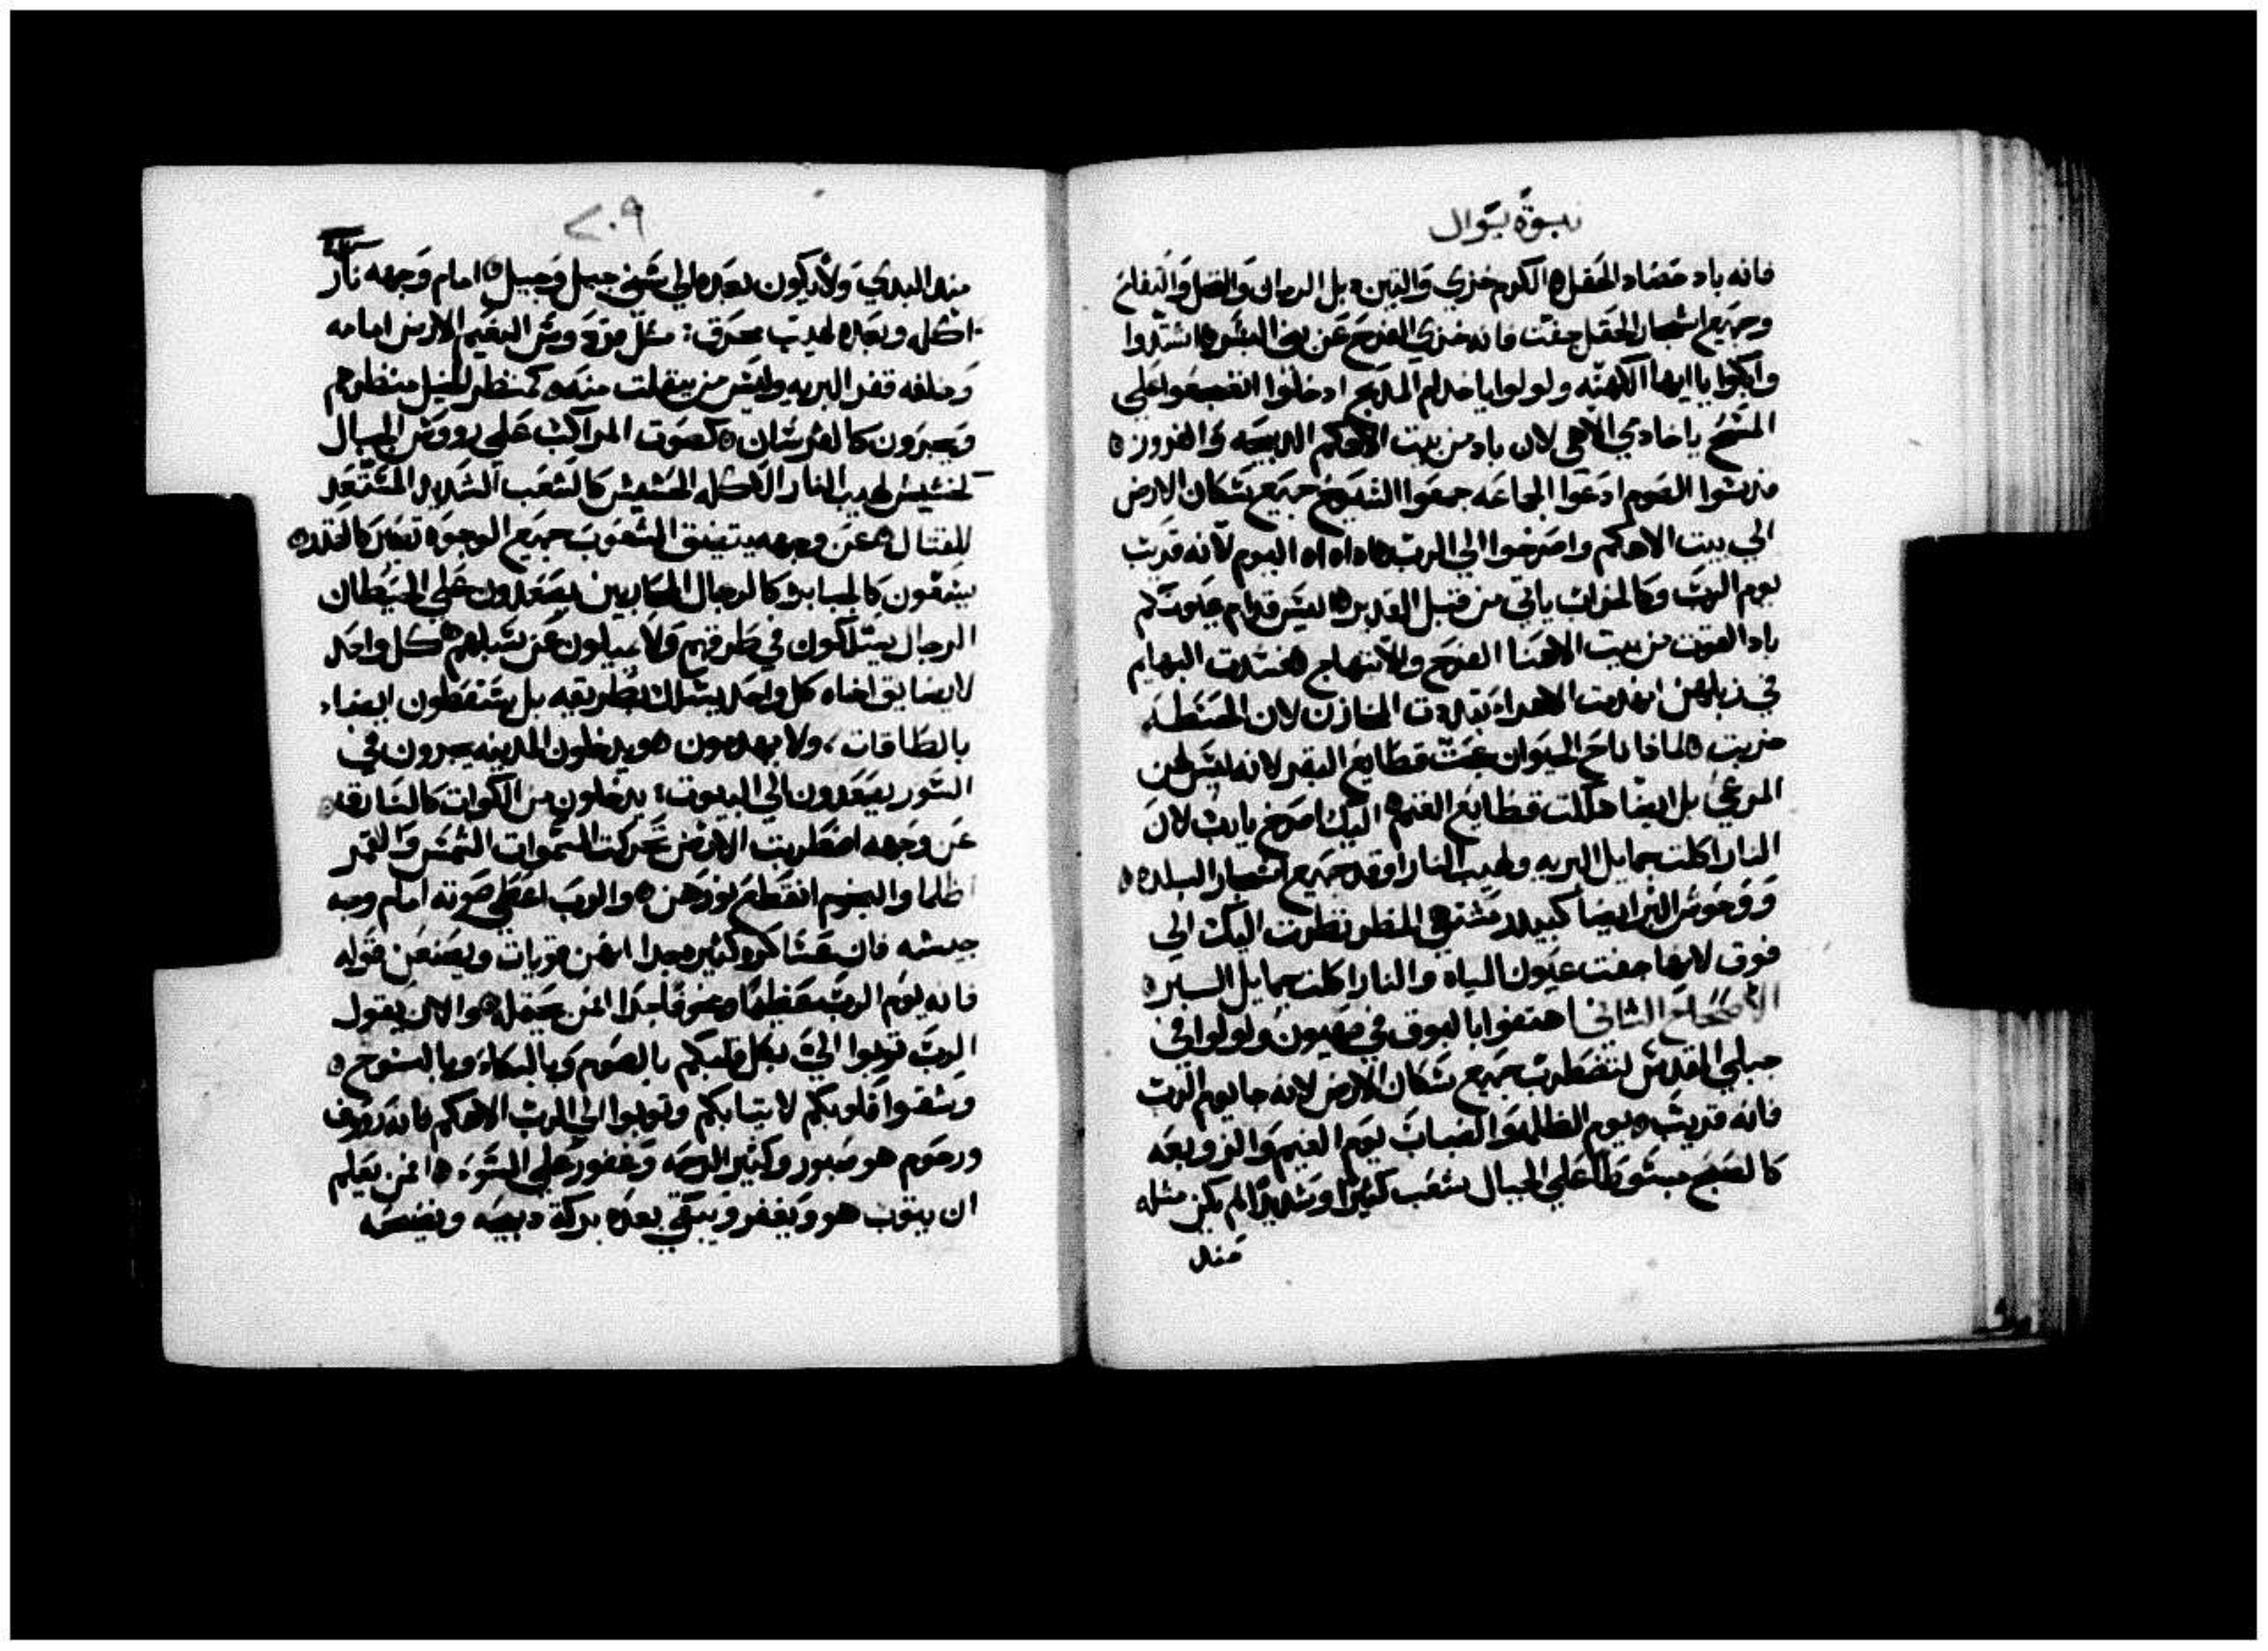 نبوة يوال
فانه باد حصاد الحقل ه الكرم خزي والتين دبل الرمان والنخل والتفاح
وجميع اشجار الحقل جفت فانه خزي الفرح عن بني البشر ه اشتدوا
وابكوا يا ايها الكهنه ولولوا يا خدام المذبح ادخلوا اضجعوا علي
المسح يا خادمي الاهي لان باد من بيت الاهكم الدبيحه والفروز ه
قدسوا الصوم ادعوا الجماعه جمعوا الشيوخ جميع سكان الارض
الي بيت الاهكم واصرخوا الي الرب ه اه اه اه اليوم لانه قريب
يوم الرب وكالخراب ياتي من قبل القدير ه اليس قدام عيونكم
باد القوت من بيت الاهنا الفرح والابتهاج ه فسدت البهايم
في زبلهن انهدمت الاهراء تبددت المخازن لان الحنطه
خزيت ه لماذا ناح الحيوان عجت قطايع البقر لانه ليس لهن
المرعي بل ايضا هلكت قطايع الغنم ه اليك اصرخ يا رب لان
النار اكلت جمايل البريه ولهيب النار اوقد جميع اشجار البلده ه
ووحوش البر ايضا كبيدر مشتهي المطر نظرت اليك الي
فوق لانها جفت عيون المياه والنار اكلت جمايل البريه
الاصحاح الثاني اهتفوا بالبوق في صهيون ولولوا في
جبلي المقدس لتضطرب جميع سكان الارض لانه جا يوم الرب
فانه قريب ه يوم الظلمه والضباب يوم الغيم والزوبعه
كالصبح مبسوطا علي الجبال شعب كثيرا وشديدا لم يكن مثله
مند
٢٠٩
مند البدي ولا يكون بعده الي سني جيل وجيل ه امام وجهه نار
اكله وبعده لهيب محرق : مثل فردوس النعيم الارض امامه
وخلفه قفر البريه وليس من يتفلت منه ه كمنظر الخيل منظرهم
ويجرون كالفرسان ه كصوت المراكب علي رووس الجبال
كنشيش لهيب النار الاكله الحشيش كالشعب الشديد المستعد
للقتال ه عن وجهه يتضيق الشعوب جميع الوجوه تصير كالقدره
يسعون كالجبابره كالرجال المحاربين يصعدون علي الحيطان
الرجال يسلكون في طرقهم ولا يميلون عن سبلهم ه كل واحد
لا يضايق اخاه كل واحد يسلك بطريقه بل يسقطون ايضا
بالطاقات ولا يهدمون ه ويدخلون المدينه يجرون في
السور يصعدون الي البيوت : يدخلون من الكوات كالسارقه
عن وجهه اضطربت الارض تحركت السموات الشمس والقمر
اظلما والنجوم انقطع نورهن ه والرب اعطي صوته امام وجه
جيشه فان عساكره كثيره جدا انهن قويات ويصنعن قوله
فانه يوم الرب عظيما ومخوفا جدا فمن يحتمله ه والان يقول
الرب توبوا الي بكل قلبكم بالصوم وبالبكاء وبالنوح ه
وشقوا قلوبكم لا ثيابكم وتوبوا الي الرب الاهكم فانه رووف
ورحوم هو صبور وكثير الرحمه وغفور علي السوء ه فمن يعلم
ان يتوب هو ويغفر ويبقي بعده بركة دبيحه ونضيحه